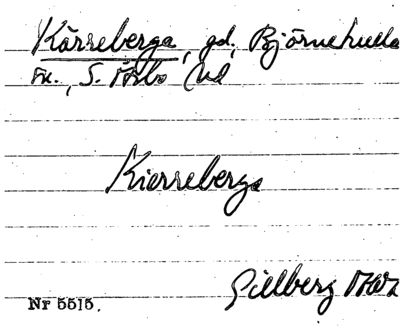 Kärreberga, gd, Björnekulla
sn., S. Åsbo hd
Kierreberga
Gillberg
Nr 5515.